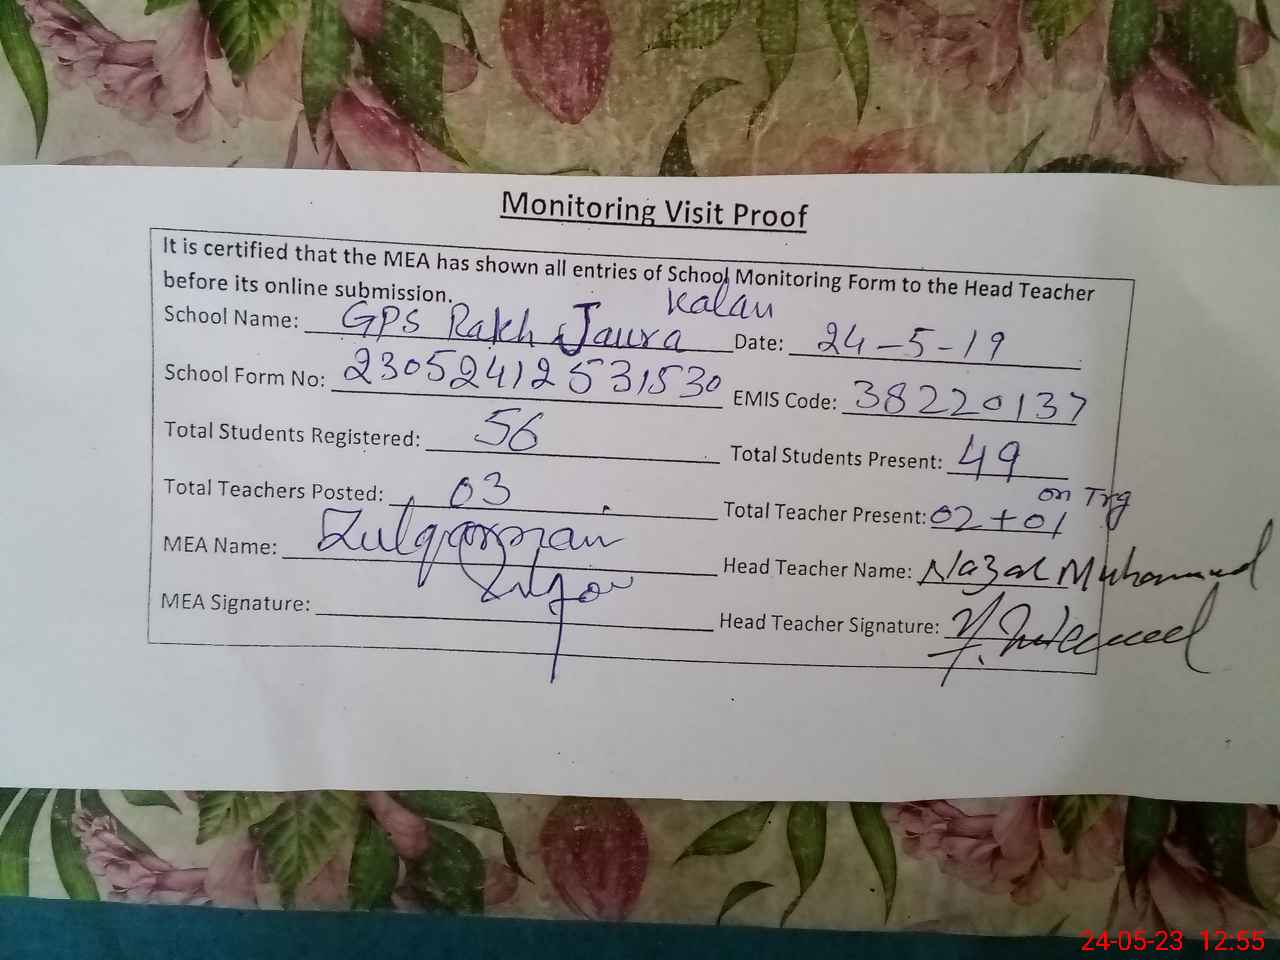 Monitoring Visit Proof
It is certified that the MEA has shown all entries of School Monitoring Form to the Head Teacher
before its online submission.
Kalan
School Name: GPS Rakh Jaura Date: 24-5-19
School Form No: 230524125531530 EMIS Code: 38220137
Total Students Registered: 56 Total Students Present: 49
on Trg
Total Teachers Posted: 03 Total Teacher Present: 02+01
MEA Name: Zulqarnan Head Teacher Name: Nazar Muhammad
MEA Signature: Head Teacher Signature:
24-05-23 12:55